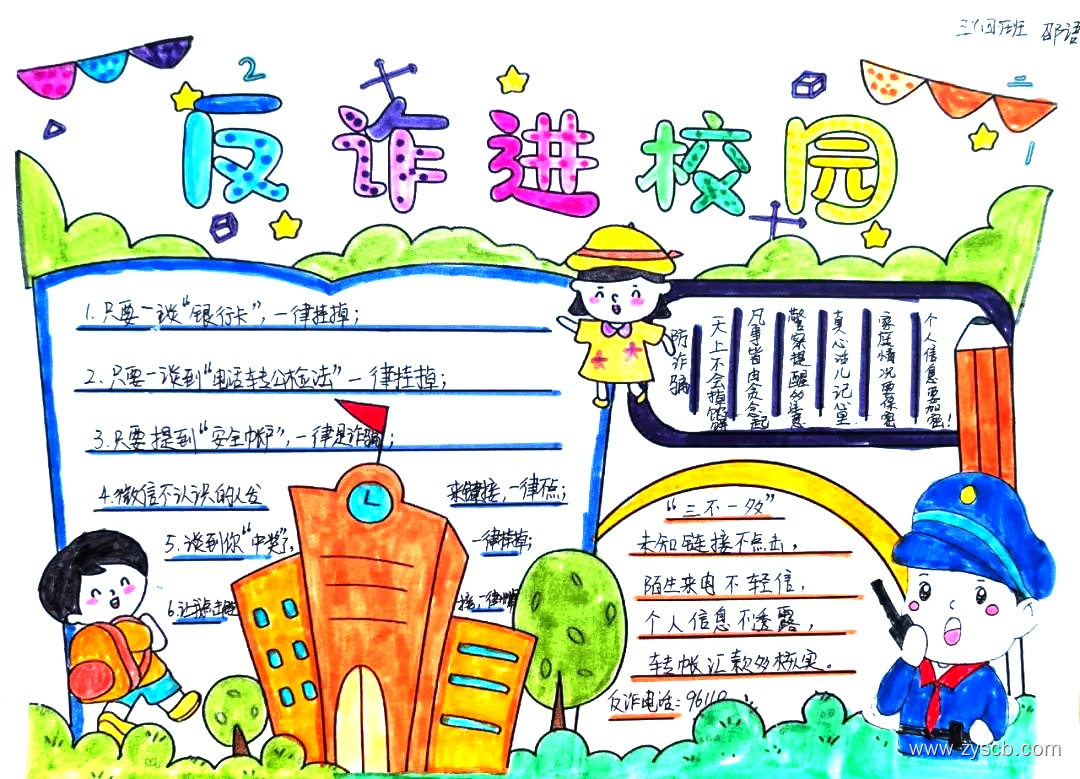 反诈进校园
1.只要一谈“银行卡”,一律挂掉;
2.只要一谈到“电话转公检法”一律挂掉;
3.只要提到“安全帐户”,一律是诈骗;
4.微信不认识的人发
来链接,一律不点;
5.谈到你“中奖了,
一律挂掉;
防诈骗
天上不会掉馅饼
凡事皆由贪念起
警察提醒多注意
真心话儿记心里
家庭情况要保密
个人信息要加密!
“三不一多”
未知链接不点击,
陌生来电不轻信,
个人信息不透露,
转帐汇款多核实。
反诈电话:96110
www.zyscb.com